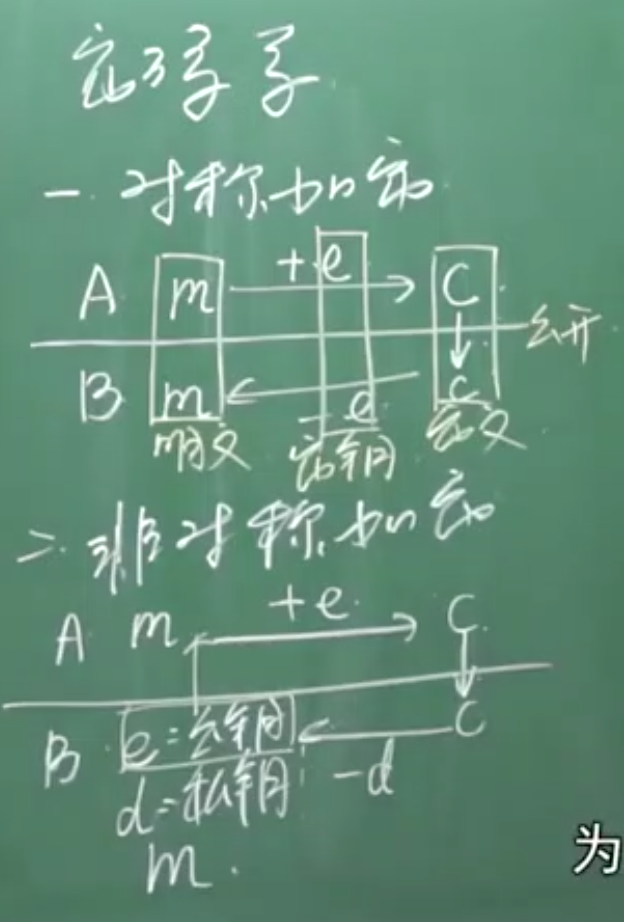 密码学
一.对称加密
A m +e C
公开
B m -e C
明文 密钥 密文
二.非对称加密
A m +e C
B e=公钥 C
d=私钥 -d
m.
为